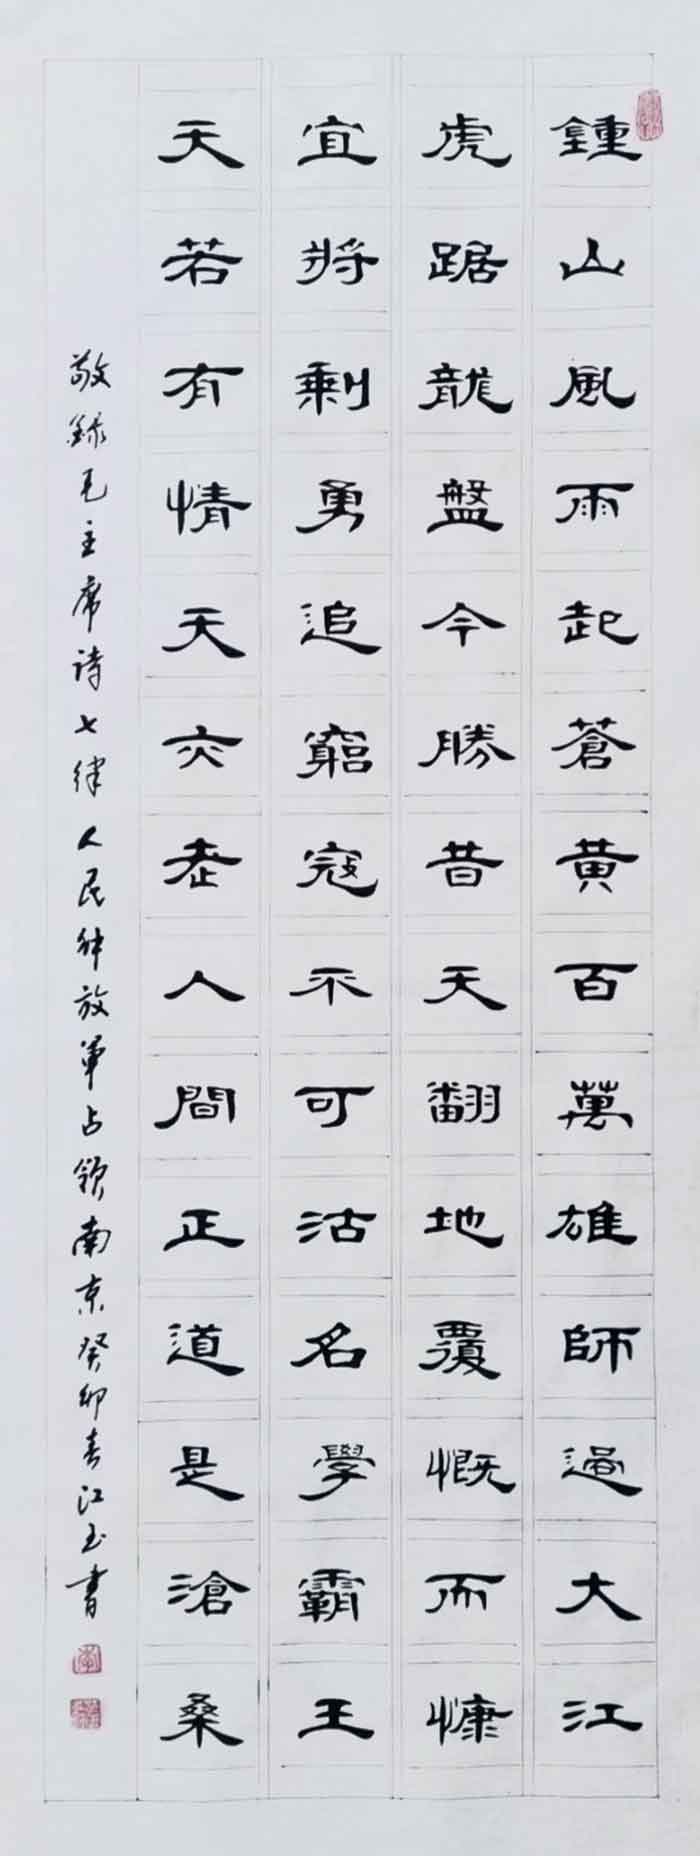 鍾山風雨起蒼黃百萬雄師過大江
虎踞龍盤今勝昔天翻地覆慨而慷
宜將剩勇追窮寇不可沽名學霸王
天若有情天亦老人間正道是滄桑
敬録毛主席诗七律人民解放军占领南京癸卯春江玉書